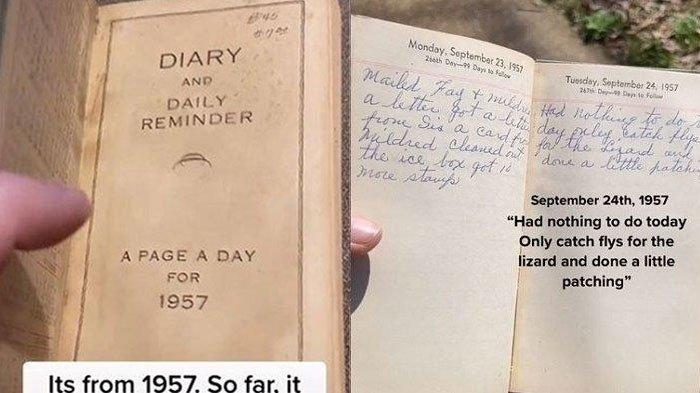 DIARY
AND
DAILY
REMINDER
A PAGE A DAY
FOR
1957
Its from 1957. So far, it
Monday, September 23, 1957
266th Day—99 Days to Follow
Mailed Fay & Mildred
a letter got a letter
from Sis a card from
Mildred cleaned out
the ice box got 10
more stamps
Tuesday, September 24, 1957
267th Day—98 Days to Follow
Had nothing to do
day only catch flys
for the lizard and
done a little patchi
September 24th, 1957
“Had nothing to do today
Only catch flys for the
lizard and done a little
patching”